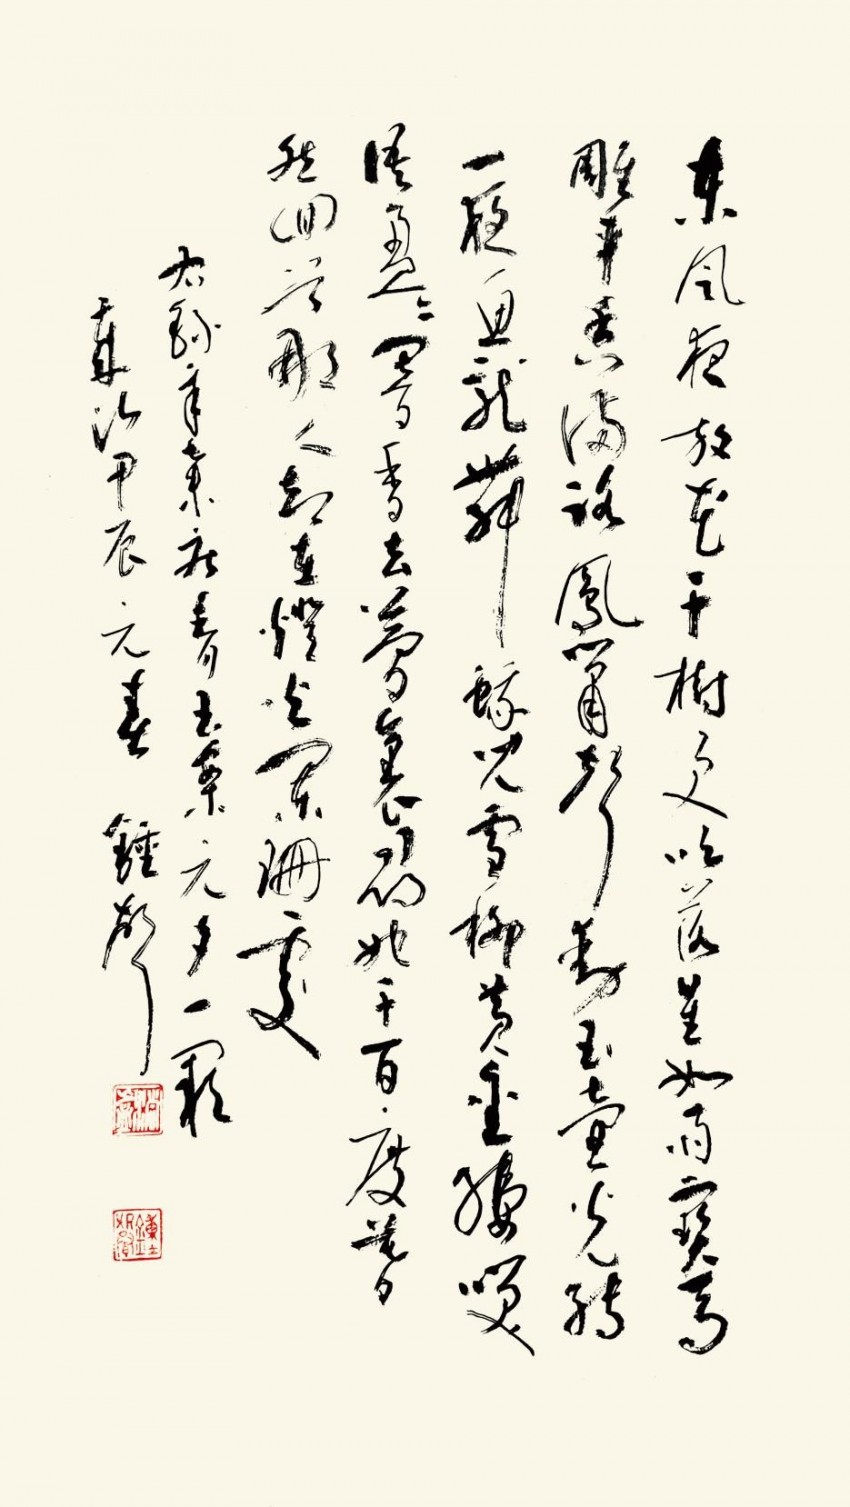 東風夜放花千樹更吹落星如雨寶馬
雕車香滿路鳳簫聲動玉壺光轉
一夜魚龍舞蛾兒雪柳黃金縷笑
語盈〻闇香去眾裏尋他千百度驀
然回首那人卻在燈火闌珊處
右錄辛棄疾青玉案元夕一闋
歲次甲辰元春 鍾聲